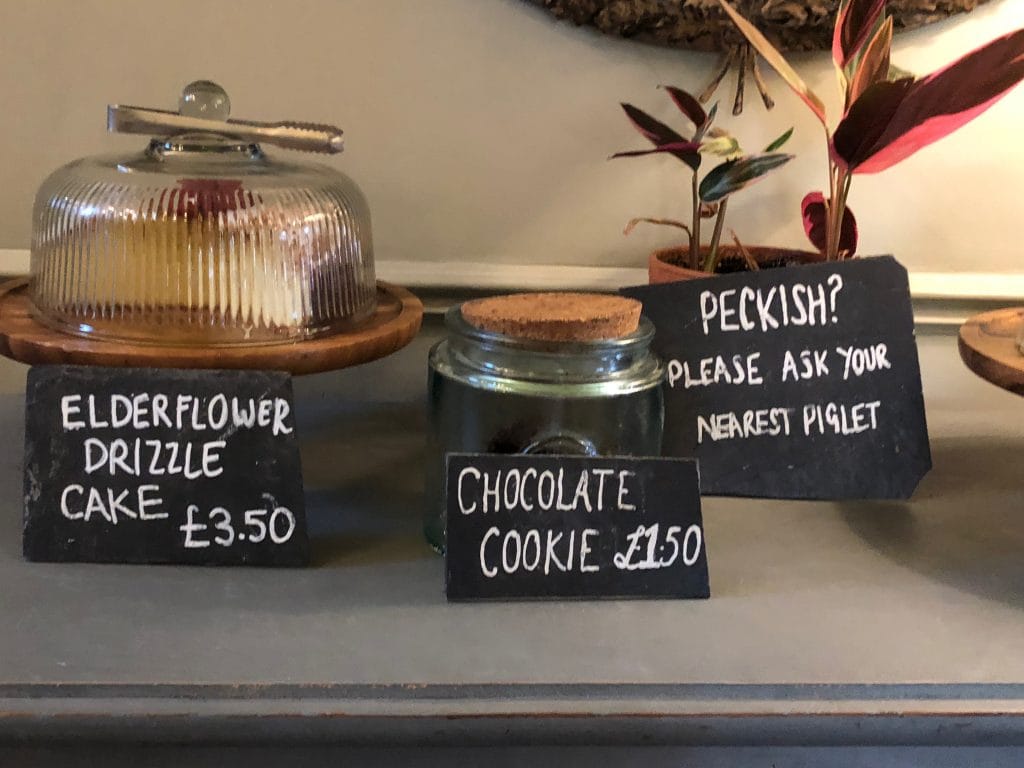 ELDERFLOWER
DRIZZLE
CAKE £3.50
CHOCOLATE
COOKIE £1.50
PECKISH?
PLEASE ASK YOUR
NEAREST PIGLET